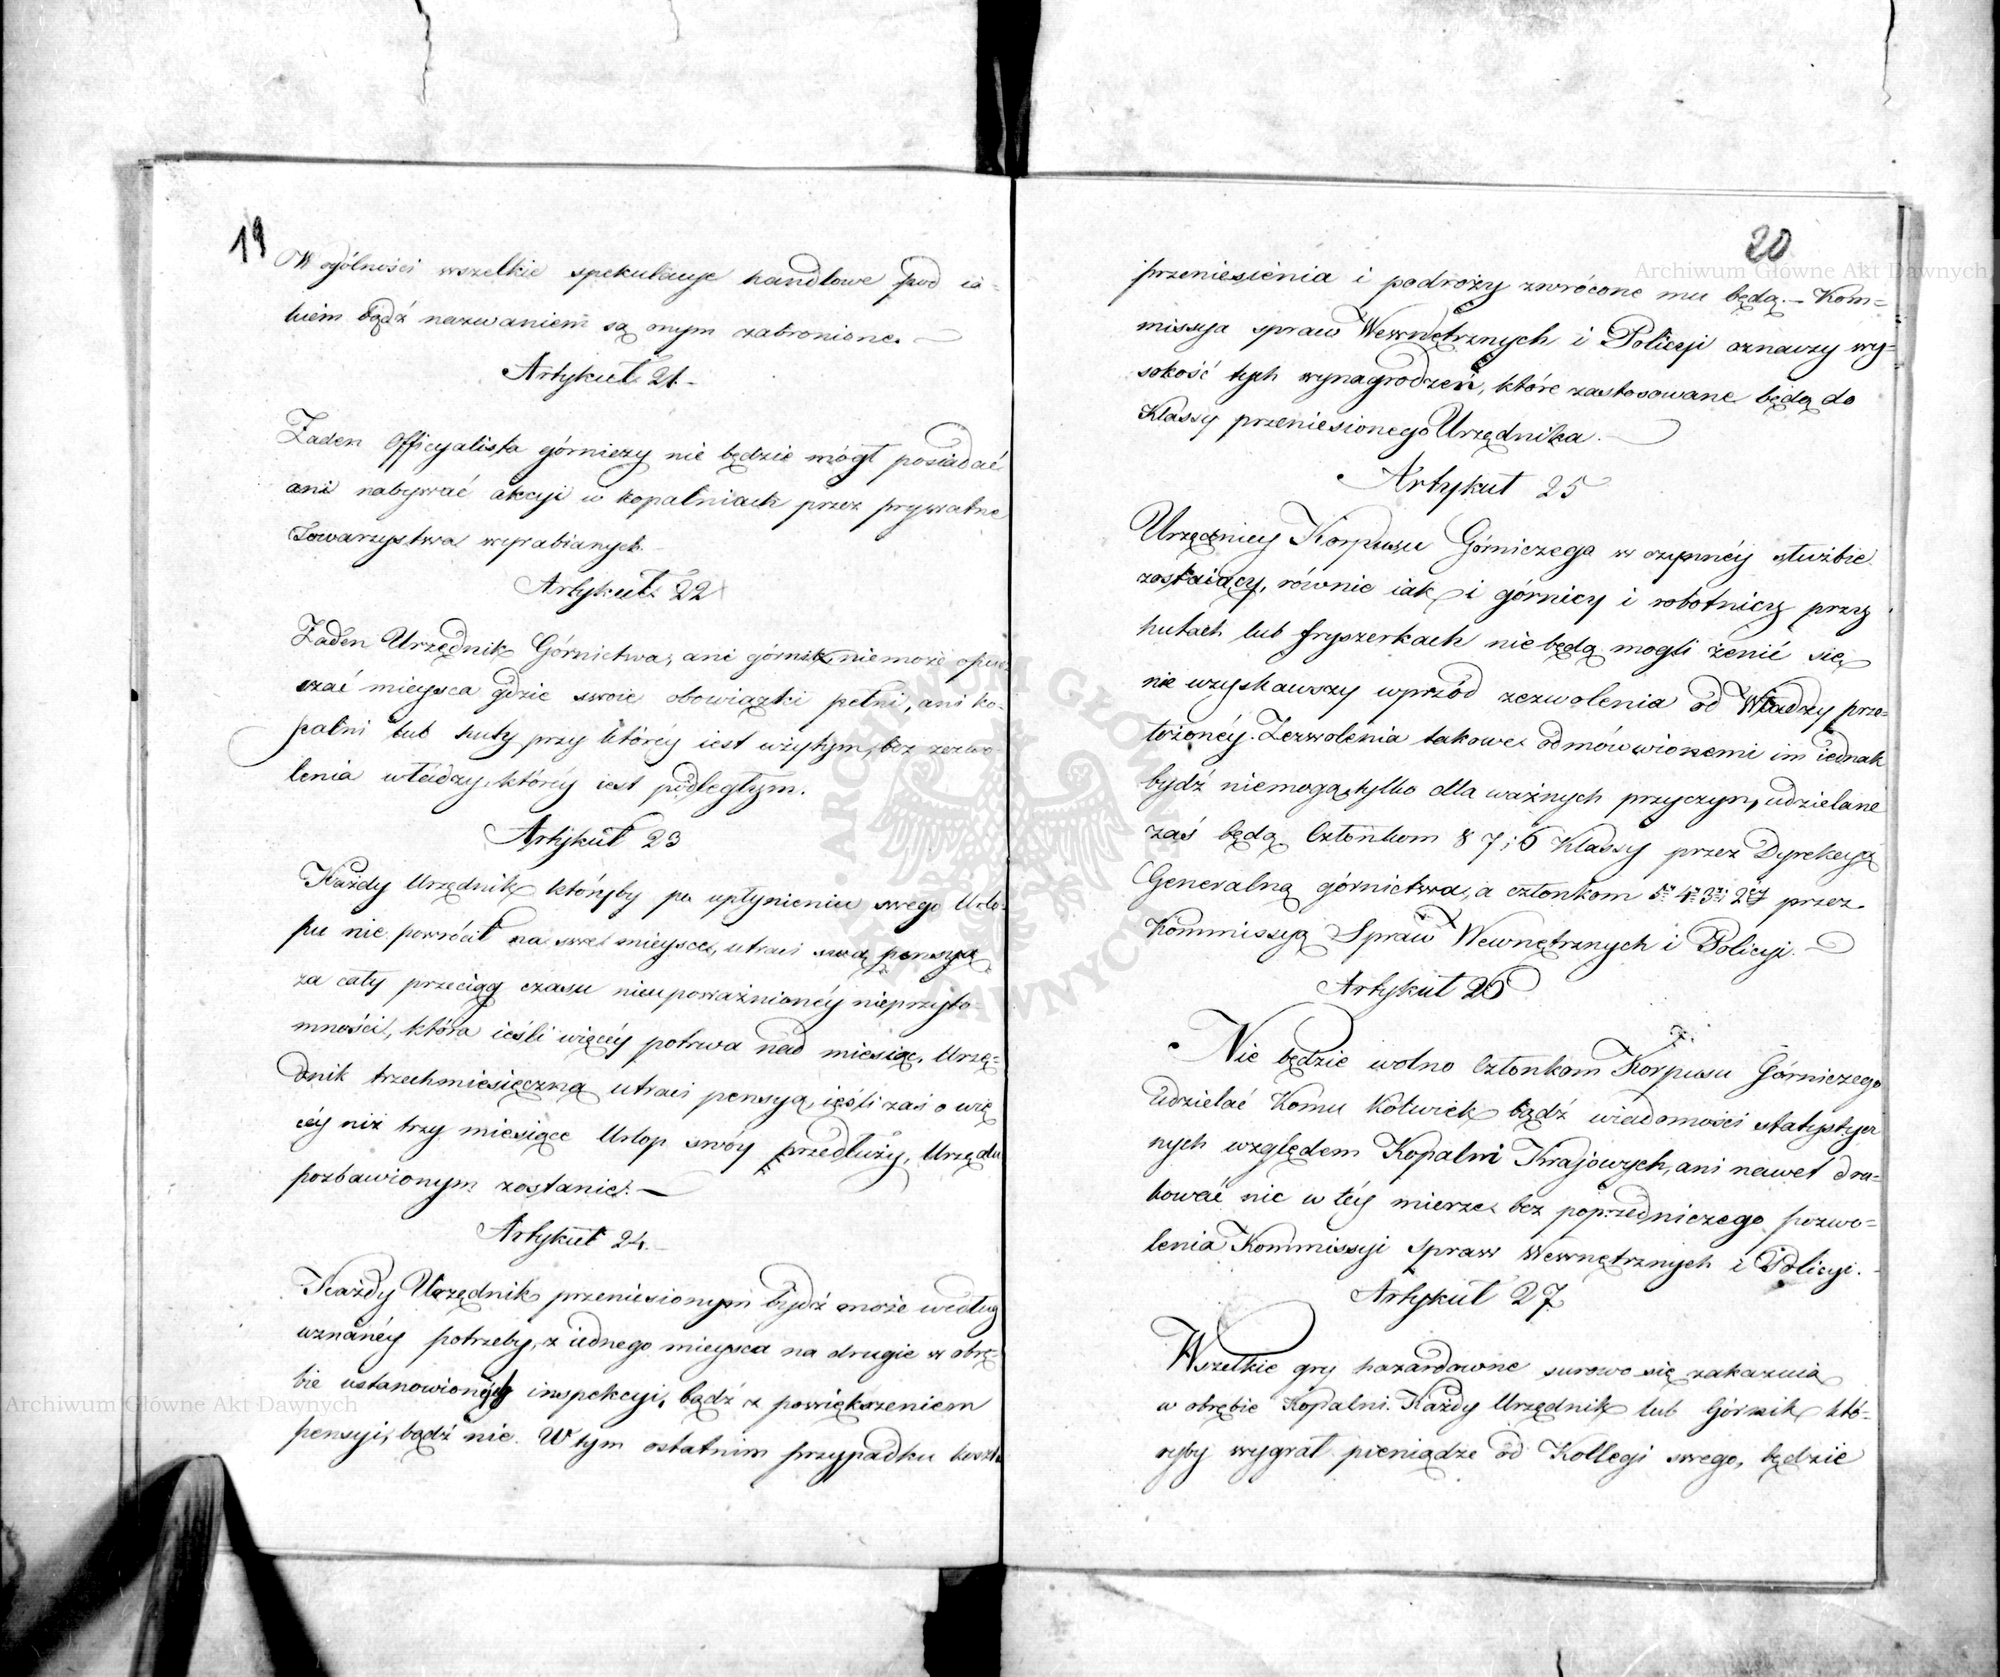 19
W ogólności wszelkie spekulacyje handlowe pod ia-
kiem bądź nazwaniem są onym zabronione. —
Artykuł 21.
Żaden Officyalista górniczy nie będzie mógł posiadać
ani nabywać akcyi w kopalniach przez prywatne
Towarzystwa wyrabianych.
Artykuł 22
Żaden Urzędnik Górnictwa, ani górnik, nie może opusz
czać mieysca gdzie swoie obowiązki pełni, ani ko-
palni lub huty przy któréy iest użytym, bez zezwo-
lenia władzy, któréy iest podległym.
Artykuł 23
Każdy Urzędnik któryby po upłynieniu swego Urlo-
pu nie powrócił na swe mieysce, utraci swą pensyą
za cały przeciąg czasu nieupoważnionéy nieprzyto-
mności, która ieśli więcéy potrwa nad miesiąc, Urzę-
dnik trzechmiesięczną utraci pensyą, ieśli zaś o wię
céy niż trzy miesiące Urlop swóy przedłuży, Urzędu
pozbawionym zostanie. —
Artykuł 24.
Każdy Urzędnik przeniesionym bydź może według
uznanéy potrzeby, z iednego mieysca na drugie w obrę-
bie ustanowionych inspekcyi, bądź z powiększeniem
pensyi, bądź nie. W tym ostatnim przypadku koszta
20
przeniesienia i podroży zwrócone mu będą. — Kom=
missya spraw Wewnętrznych i Policyi oznaczy wy=
sokość tych wynagrodzeń, które zastosowane będą do
Klassy przeniesionego Urzędnika. —
Artykuł 25
Urzędnicy Korpusu Górniczego w czynnéy służbie
zostaiący, równie iak i górnicy i robotnicy przy
hutach lub fryszerkach nie będą mogli żenić się
nie uzyskawszy wprzód zezwolenia od Władzy prze-
łożonéy. Zezwolenia takowe odmówionemi im iednak
bydź niemogą, tylko dla ważnych przyczyn, udzielane
zaś będą Członkom 8 7 i 6 Klassy przez Dyrekcyą
Generalną górnictwa, a członkom 5ey 4ey 3ey i 2ey przez
Kommissyą Spraw Wewnętrznych i Policyi. —
Artykuł 26
Nie będzie wolno Członkom Korpusu Górniczego
udzielać Komu Kolwiek bądź wiadomości statystycz
nych względem Kopalni Krajowych, ani nawet dru-
kować nic w téy mierze bez poprzedniczego pozwo=
lenia Kommissyi spraw Wewnętrznych i Policyi. -
Artykuł 27
Wszelkie gry hazardowne surowo się zakazuią
w obrębie Kopalni. Każdy Urzędnik lub Górnik któ-
ryby wygrał pieniądze od Kollegi swego, będzie
Archiwum Główne Akt Dawnych
Archiwum Główne Akt Dawnych